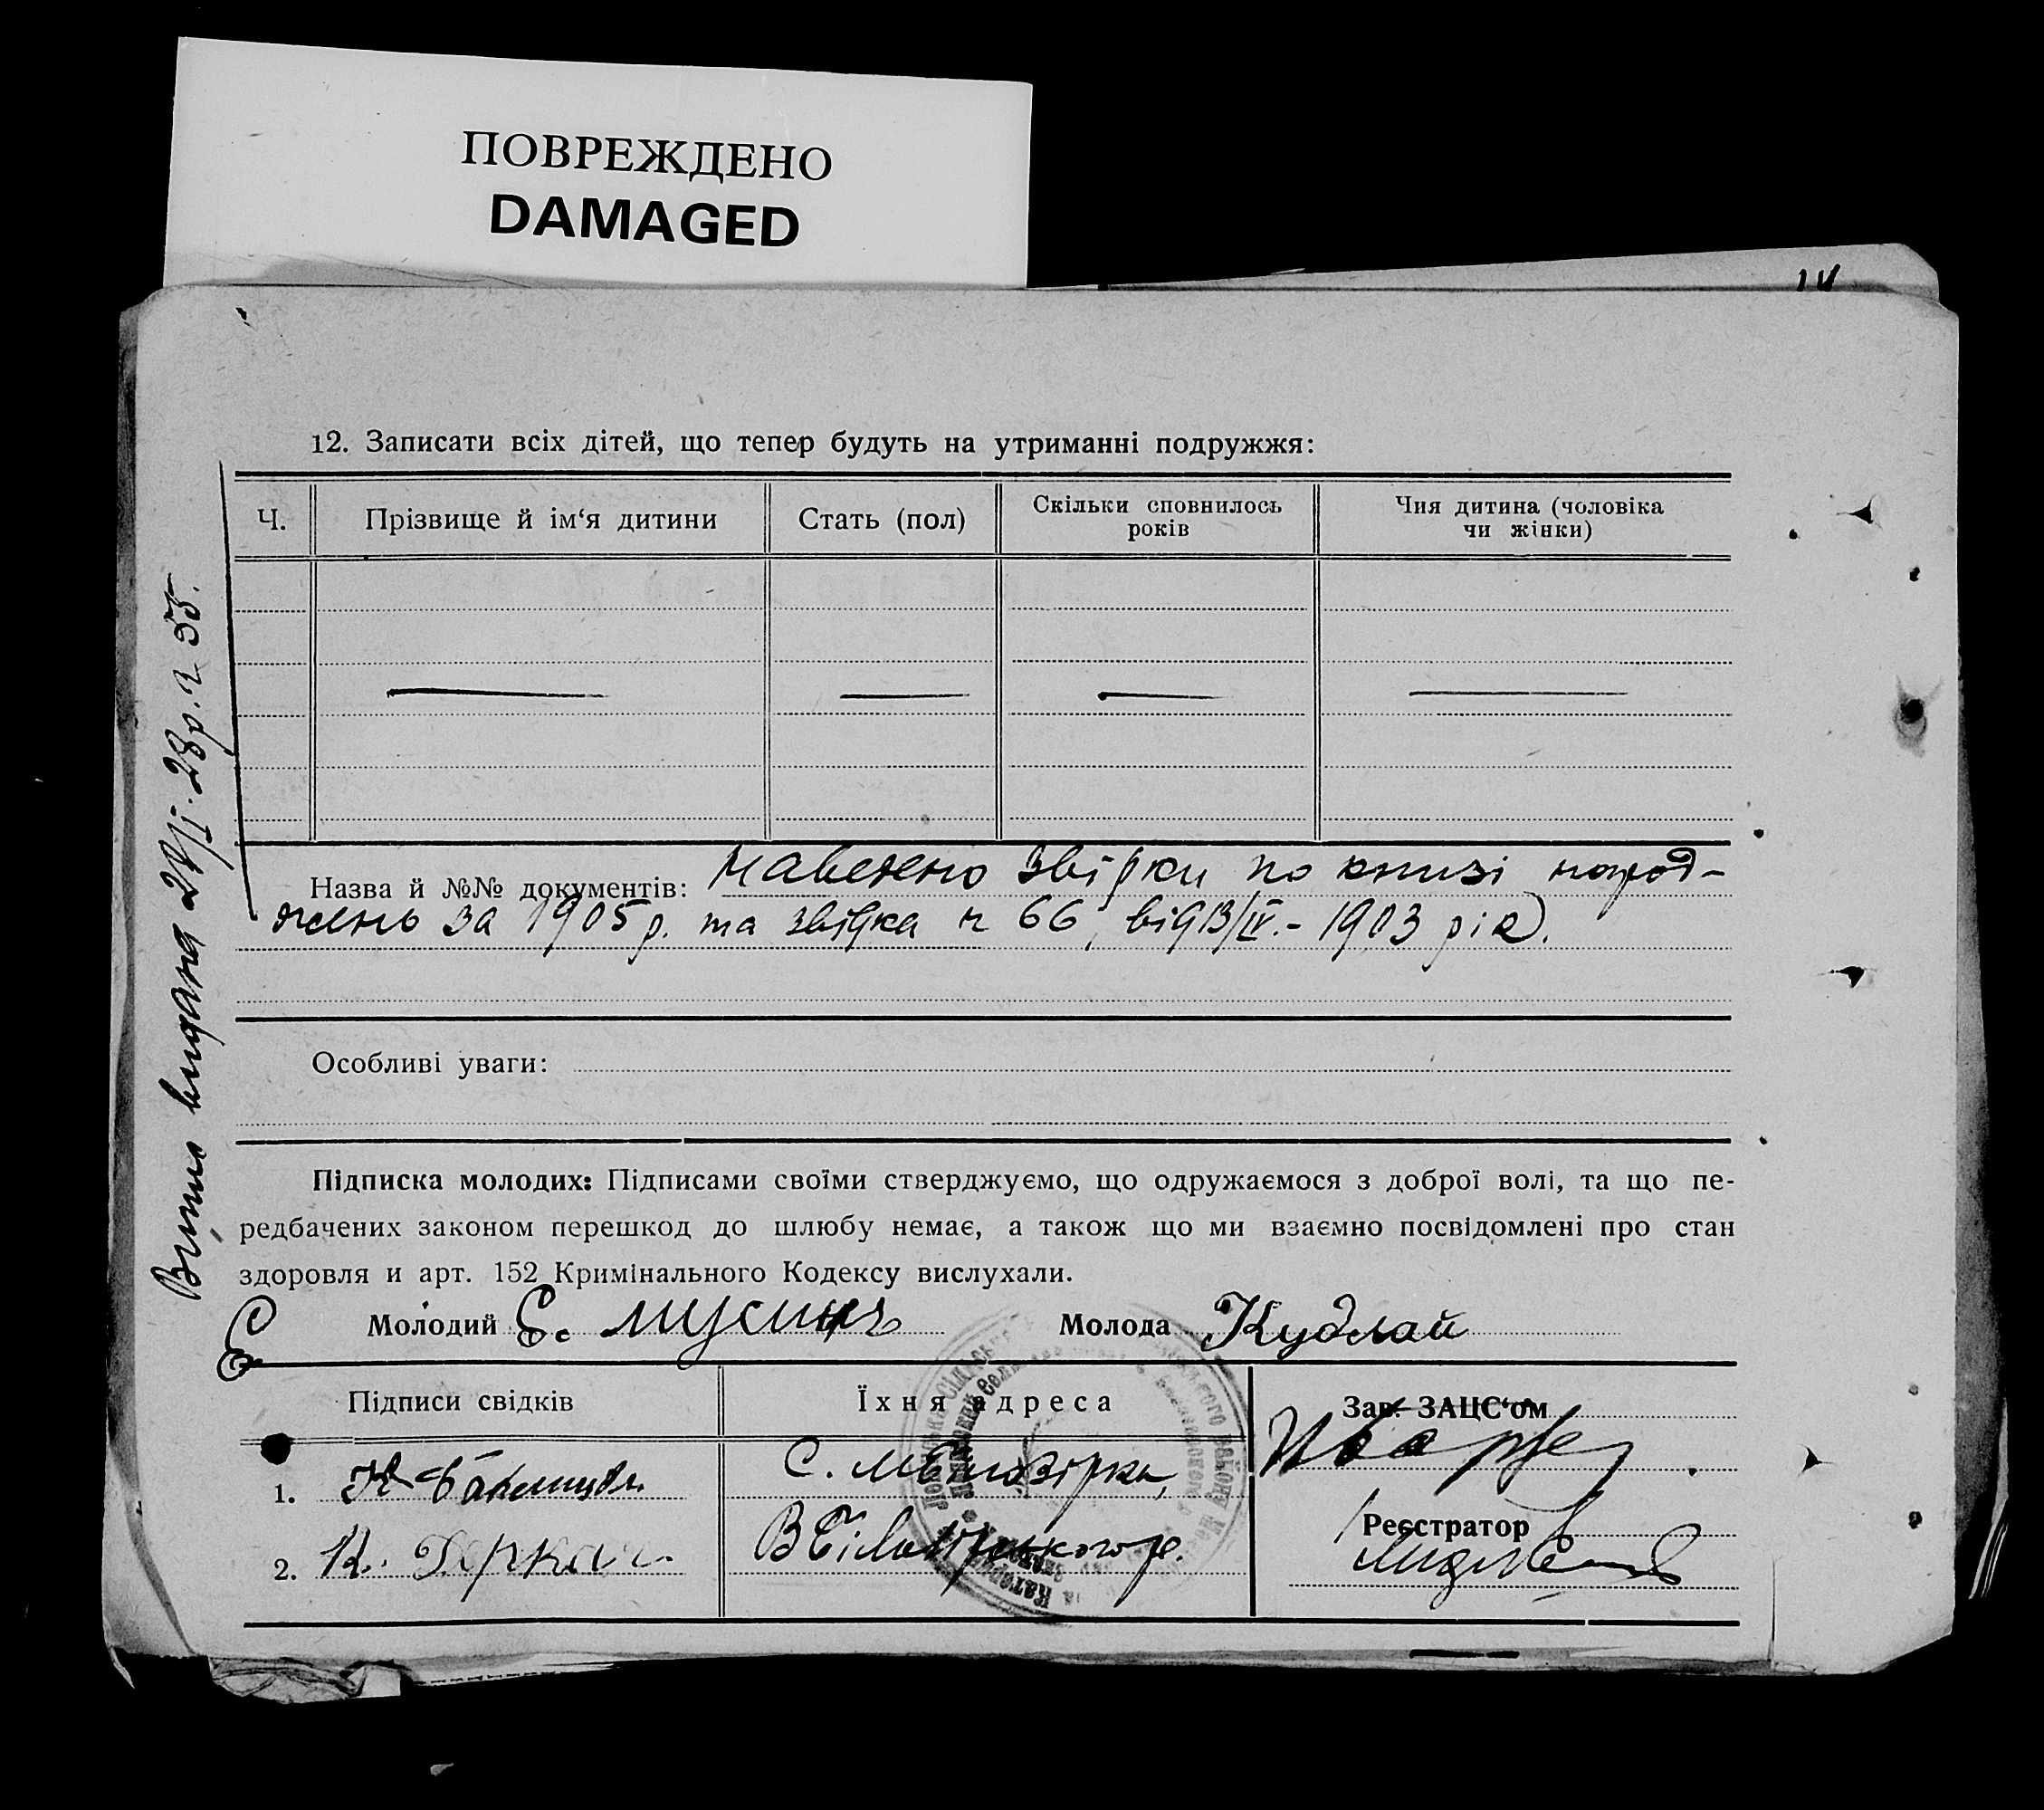 ПОВРЕЖДЕНО
DAMAGED
12. Записати всіх дітей, що тепер будуть на утриманні подружжя:
Ч.
Прізвище й ім‘я дитини
Стать (пол)
Скільки сповнилось
років
Чия дитина (чоловіка
чи жінки)
Назва й №№ документів: Наведено Звірки по книзі народ-
жень за 1905 р. та звірка н 66, від 13/IV.- 1903 рік.
Особливі уваги:
Підписка молодих: Підписами своїми стверджуємо, що одружаємося з доброї волі, та що пе-
редбачених законом перешкод до шлюбу немає, а також що ми взаємно посвідомлені про стан
здоровля и арт. 152 Кримінального Кодексу вислухали.
Молодий Є. Мусиик Молода Кудлай
Підписи свідків
Їхня адреса
Зав. ЗАЦС‘ом
1.
С. М Білозірка,
2. К. Деркач.
ВБілозірського р.
Реєстратор
видана 21/I-28р.